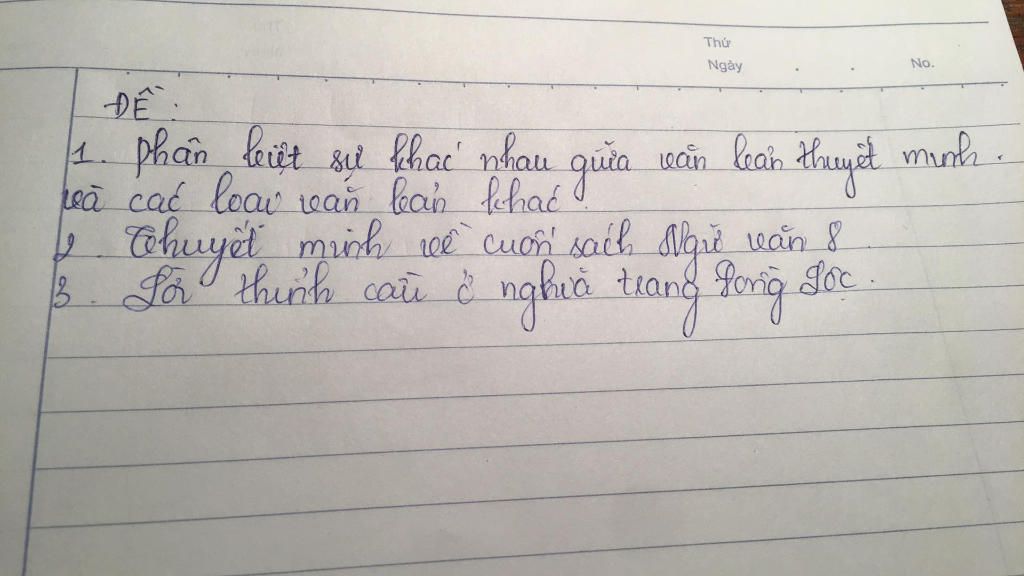 Thứ
Ngày . . No.
ĐỀ :
1. Phân biệt sự khác nhau giữa văn bản thuyết minh.
và các loại văn bản khác.
2. Thuyết minh về cuốn sách Ngữ văn 8
3. Lời thỉnh cầu ở nghĩa trang Đồng Lộc.